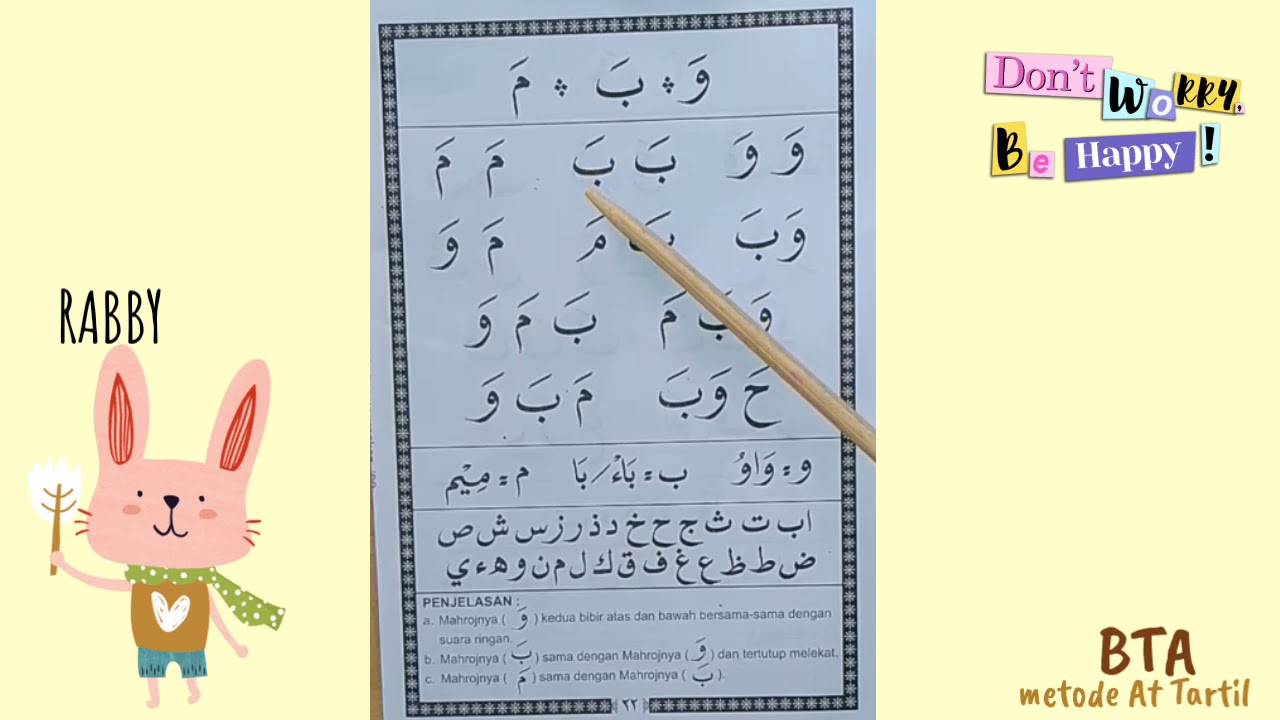 RABBY
وَ ؞ بَ ؞ مَ
وَ وَ بَ بَ مَ مَ
وَ بَ بَ مَ مَ وَ
وَ بَ مَ بَ مَ وَ
حَ وَ بَ مَ بَ وَ
و = وَاوُ ب = بَاءْ / بَا م = مِيْم
ا ب ت ث ج ح خ د ذ ر ز س ش ص
ض ط ظ ع غ ف ق ك ل م ن و ه ء ي
PENJELASAN :
a. Mahrojnya ( وَ ) kedua bibir atas dan bawah bersama-sama dengan
suara ringan.
b. Mahrojnya ( بَ ) sama dengan Mahrojnya ( وَ ) dan tertutup melekat.
c. Mahrojnya ( مَ ) sama dengan Mahrojnya ( بَ ).
٢٢
Don't WoRRY,
Be Happy !
BTA
metode At Tartil